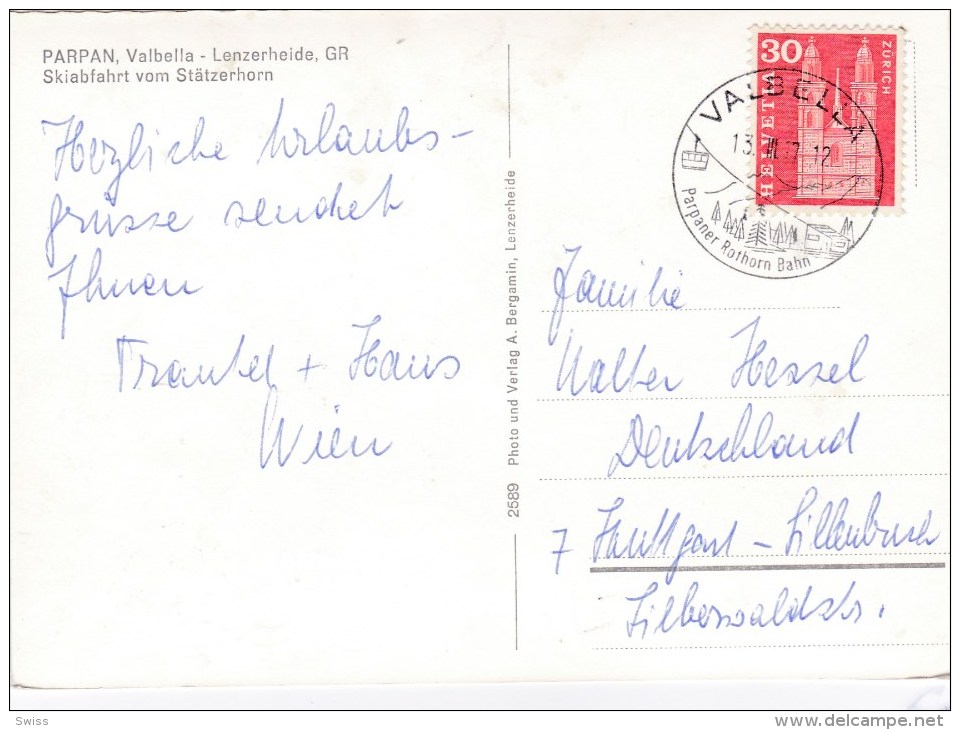 PARPAN, Valbella - Lenzerheide, GR
Skiabfahrt vom Stätzerhorn
Herzliche Urlaubs-
grüsse sendet
Ihnen
Trautel + Hans
Wien
2589 Photo und Verlag A. Bergamin, Lenzerheide
30
HELVETIA
ZÜRICH
VALBELLA
13. 12
Parpaner Rothorn Bahn
Familie
Walter Hessel
Deutschland
7 Stuttgart - Sillenbuch
Silberwaldstr.
Swiss
www.delcampe.net